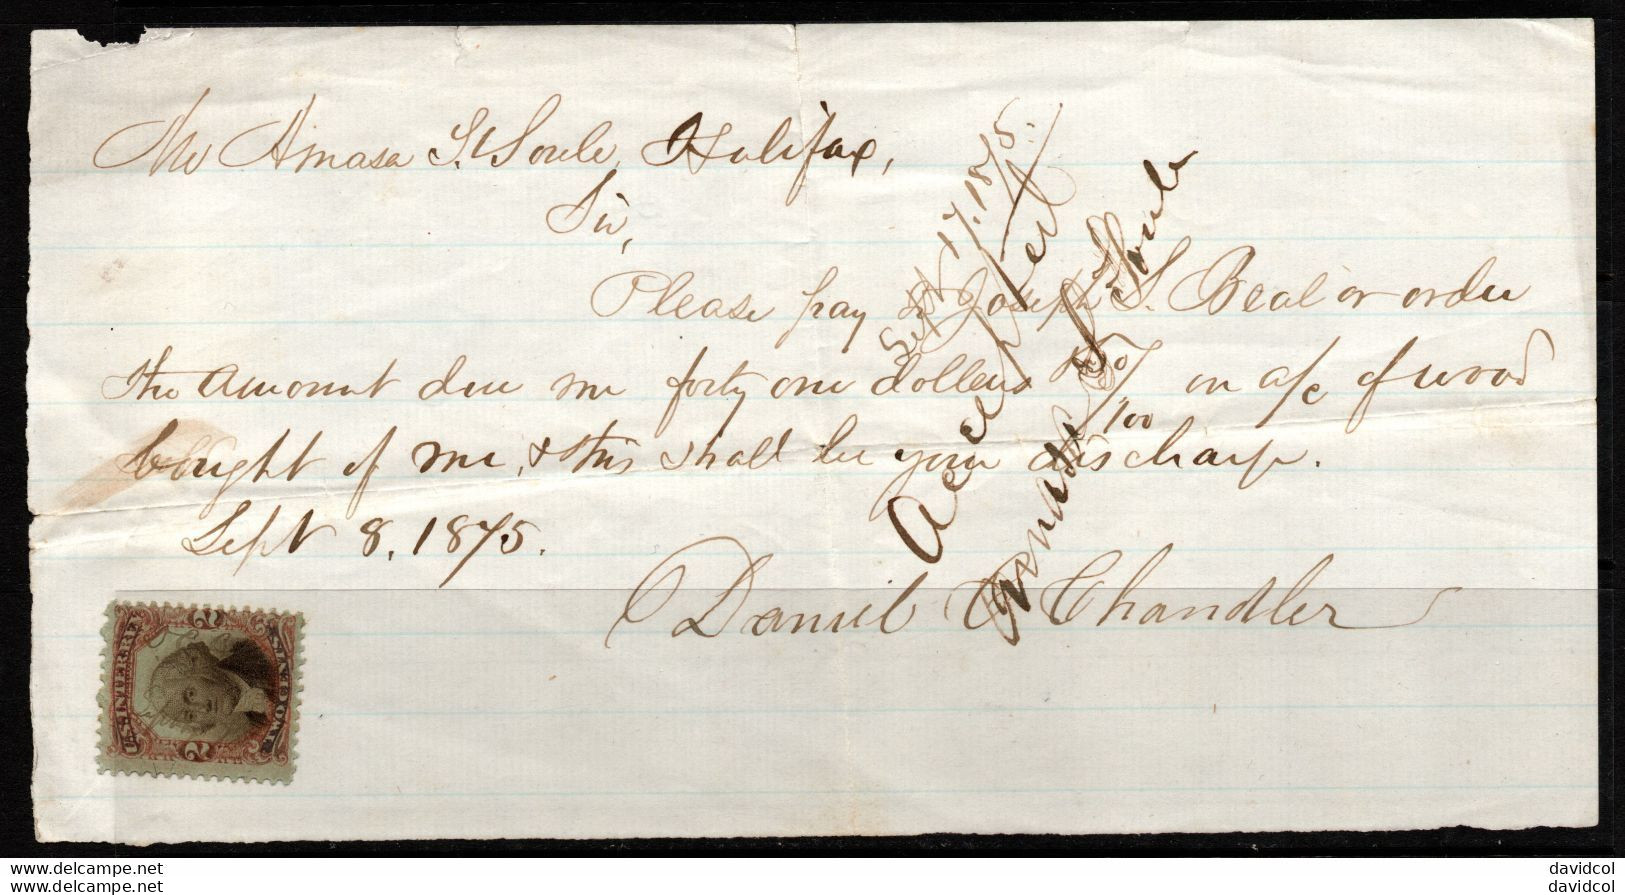 Mr Amasa S. Soule, Halifax,
Sir,
Please pay to Joseph S. Beal or order
the amount due me forty one dollars 50/100 on a/c of wood
bought of me, & this shall be your discharge.
Sept 8, 1875.
Daniel C Chandler
Sept 17. 1875.
Accepted
Amasa S. Soule
U.S. INTER. REV.
TWO CENTS
2
2
www.delcampe.net
www.delcampe.net
davidcol
davidcol